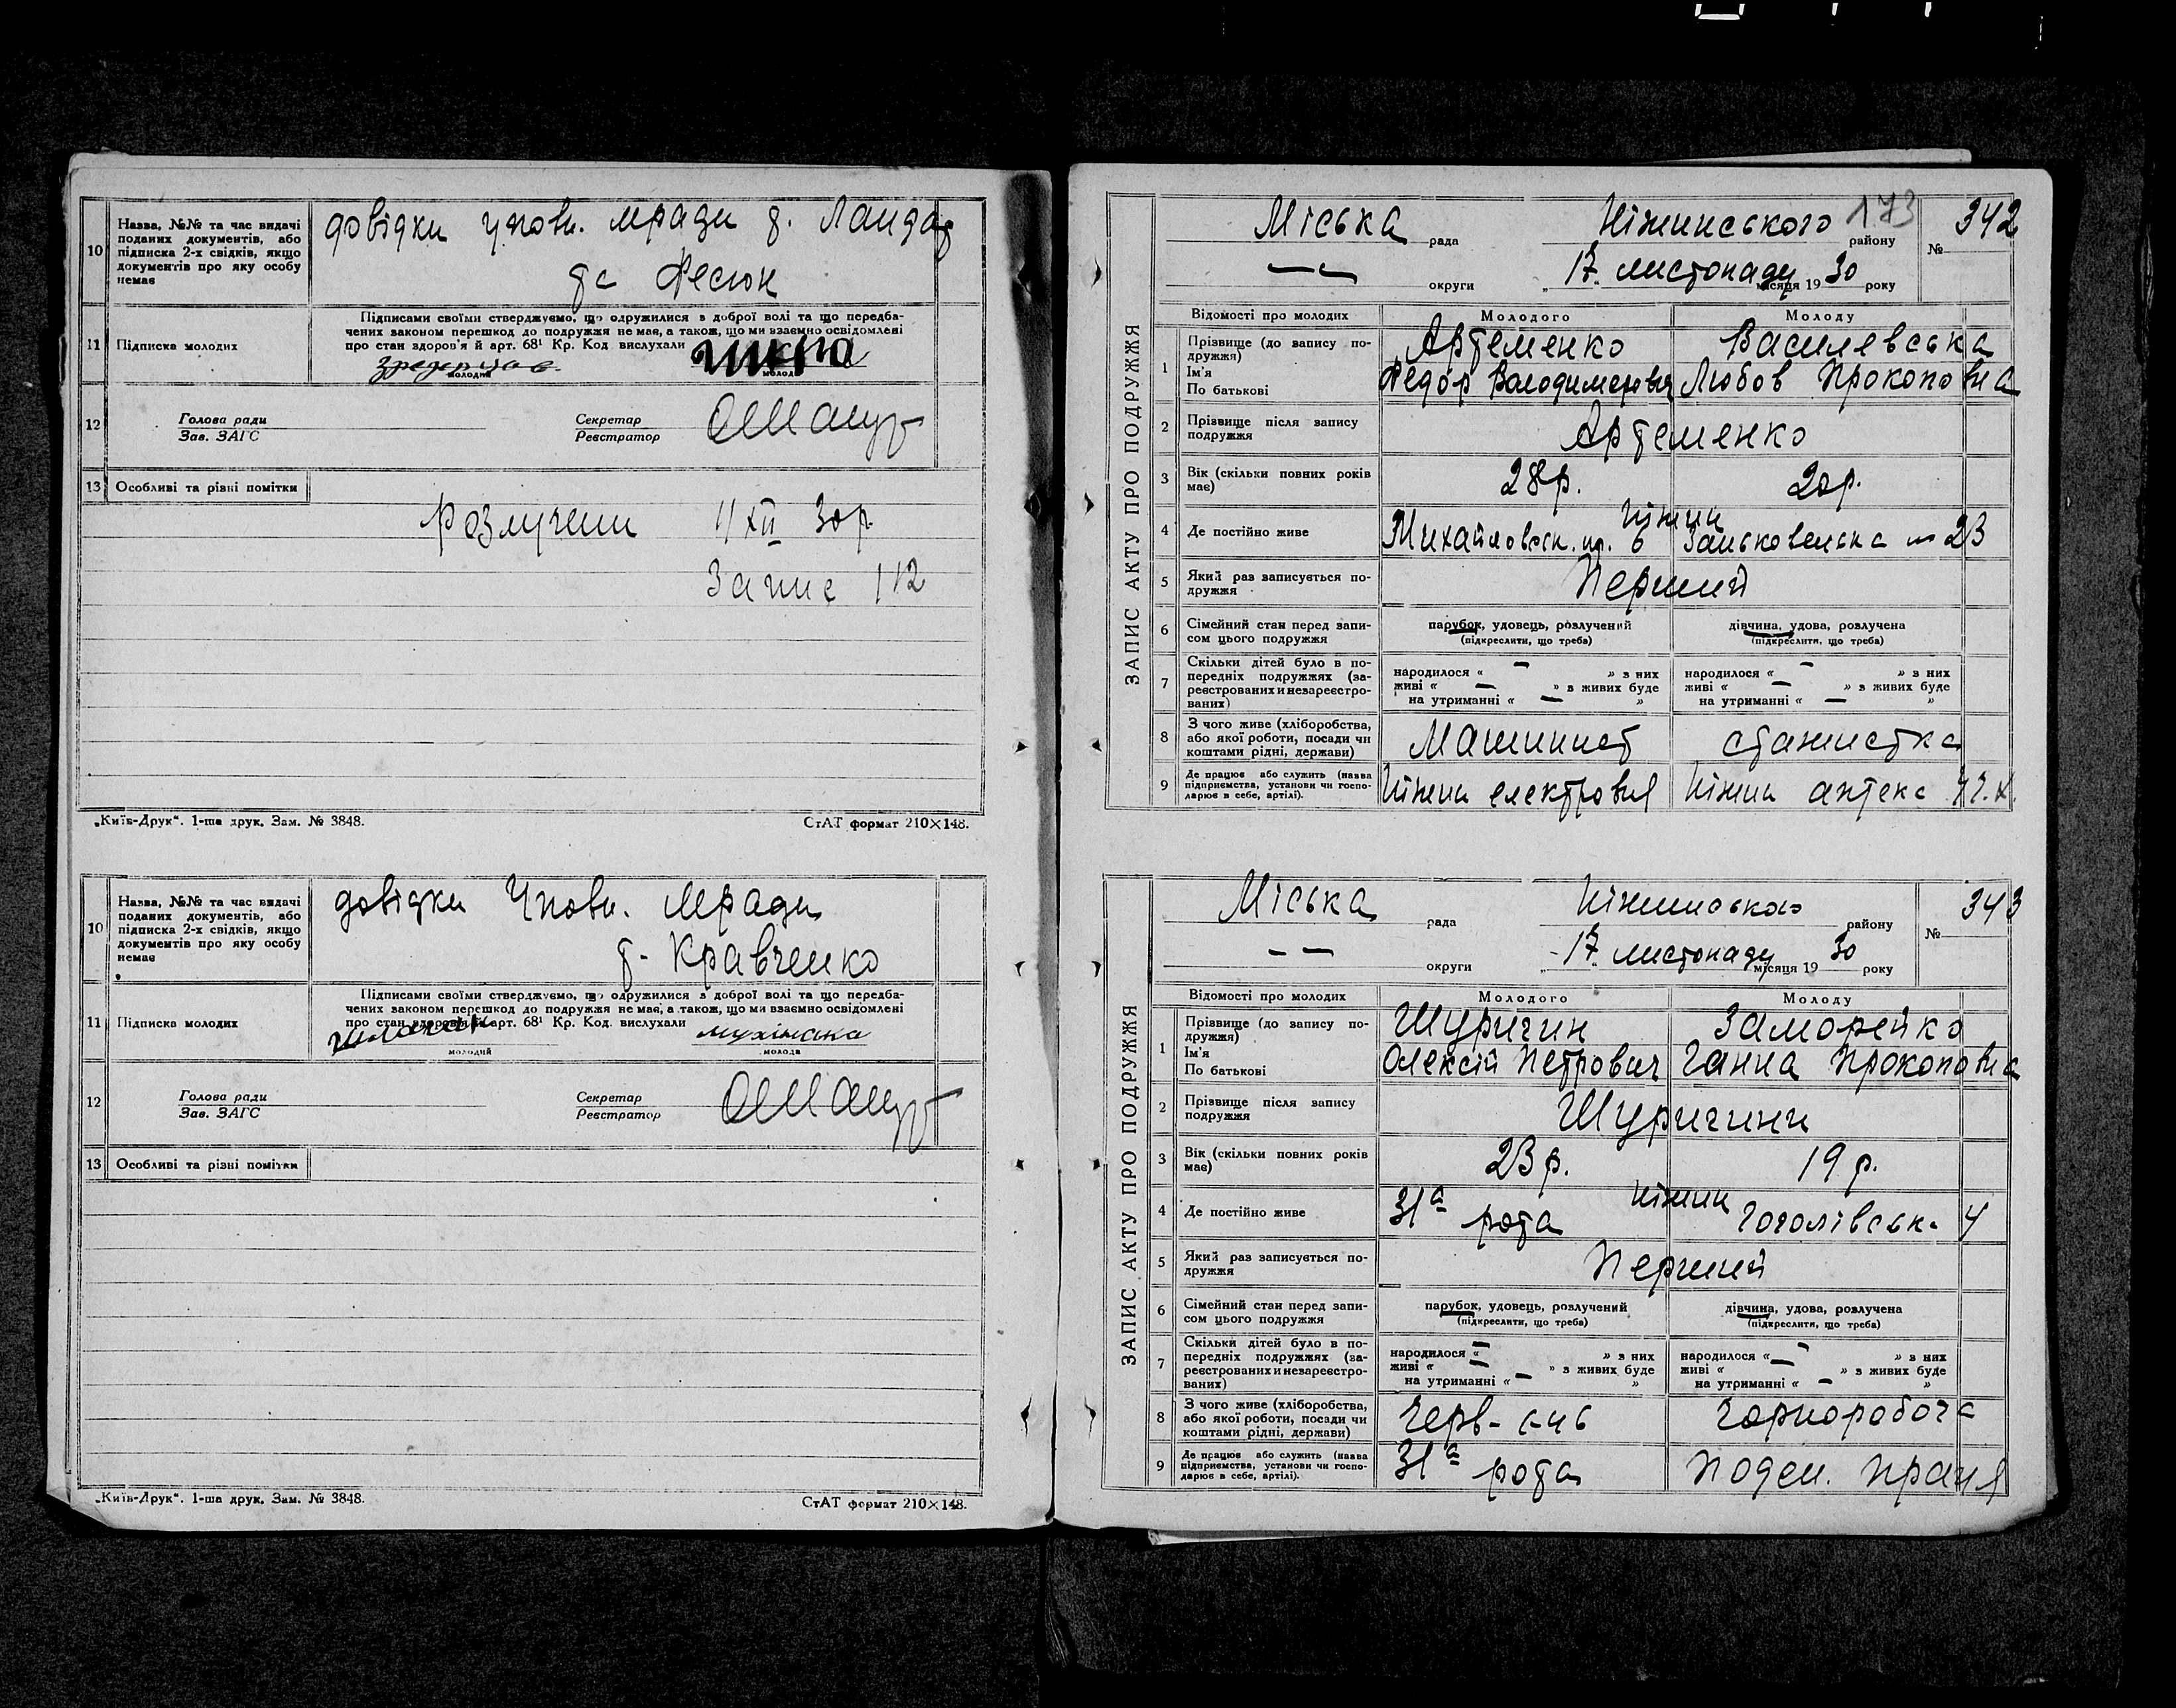 10 Назва, №№ та час видачі
поданих документів, або
підписка 2-х свідків, якщо
документів про яку особу
немає
довідки упов. мради т. Ландар
та Фесюк
11 Підписка молодих
Підписами своїми стверджуємо, що одружилися з доброї волі та що передба-
чених законом перешкод до подружжя не має, а також, що ми взаємно освідомлені
про стан здоров'я й арт. 68¹ Кр. Код. вислухали
молодий молода
12 Голова ради Секретар
Зав. ЗАГС Реєстратор
13 Особливі та різні помітки
Розлучени 1/XII 30р.
Запис 112
„Київ-Друк“. 1-ша друк. Зам. № 3848. СтАТ формат 210×148.
10 Назва, №№ та час видачі
поданих документів, або
підписка 2-х свідків, якщо
документів про яку особу
немає
довідки Упов. Мради
т. Кравченко
11 Підписка молодих
Підписами своїми стверджуємо, що одружилися з доброї волі та що передба-
чених законом перешкод до подружжя не має, а також, що ми взаємно освідомлені
про стан здоров'я й арт. 68¹ Кр. Код. вислухали
молодий молода
12 Голова ради Секретар
Зав. ЗАГС Реєстратор
13 Особливі та різні помітки
„Київ-Друк“. 1-ша друк. Зам. № 3848. СтАТ формат 210×148.
173
ЗАПИС АКТУ ПРО ПОДРУЖЖЯ
Міська рада Ніжинського району № 342
— — округи „17“ листопаду місяця 1930 року
Відомості про молодих Молодого Молоду
1 Прізвище (до запису по-
дружжя)
Ім'я
По батькові
Артеменко Василевська
Федор Володимерович Любов Прокоповна
2 Прізвище після запису
подружжя
Артеменко
3 Вік (скільки повних років
має)
28р. 20р.
4 Де постійно живе
Ніжин
Михайловск. пл. 6 Заньковецька 23
5 Який раз записується по-
дружжя
Перший
6 Сімейний стан перед запи-
сом цього подружжя
парубок, удовець, розлучений дівчина, удова, розлучена
(підкреслити, що треба) (підкреслити, що треба)
7 Скільки дітей було в по-
передніх подружжях (за-
реєстрованих и незареєстро-
ваних)
народилося « — » з них народилося « — » з них
живі « — » з живих буде живі « — » з живих буде
на утриманні « — » на утриманні « — »
8 З чого живе (хліборобства,
або якої роботи, посади чи
коштами рідні, держави)
Машинист стажистка
9 Де працює або служить (назва
підприємства, установи чи госпо-
дарює в себе, артілі).
Ніжин електровня Ніжин аптека
ЗАПИС АКТУ ПРО ПОДРУЖЖЯ
Міська рада Ніжинського району № 343
— — округи „17“ листопаду місяця 1930 року
Відомості про молодих Молодого Молоду
1 Прізвище (до запису по-
дружжя)
Ім'я
По батькові
Шуригин Заморейко
Олексій Петрович Ганна Прокоповна
2 Прізвище після запису
подружжя
Шуригини
3 Вік (скільки повних років
має)
23р. 19р.
4 Де постійно живе
Ніжин
31а рота Гоголівськ. 4
5 Який раз записується по-
дружжя
Перший
6 Сімейний стан перед запи-
сом цього подружжя
парубок, удовець, розлучений дівчина, удова, розлучена
(підкреслити, що треба) (підкреслити, що треба)
7 Скільки дітей було в по-
передніх подружжях (за-
реєстрованих и незареєстро-
ваних)
народилося « — » з них народилося « — » з них
живі « — » з живих буде живі « — » з живих буде
на утриманні « — » на утриманні « — »
8 З чого живе (хліборобства,
або якої роботи, посади чи
коштами рідні, держави)
Черв- Чорноробоча
9 Де працює або служить (назва
підприємства, установи чи госпо-
дарює в себе, артілі).
31а рота Поден. праця